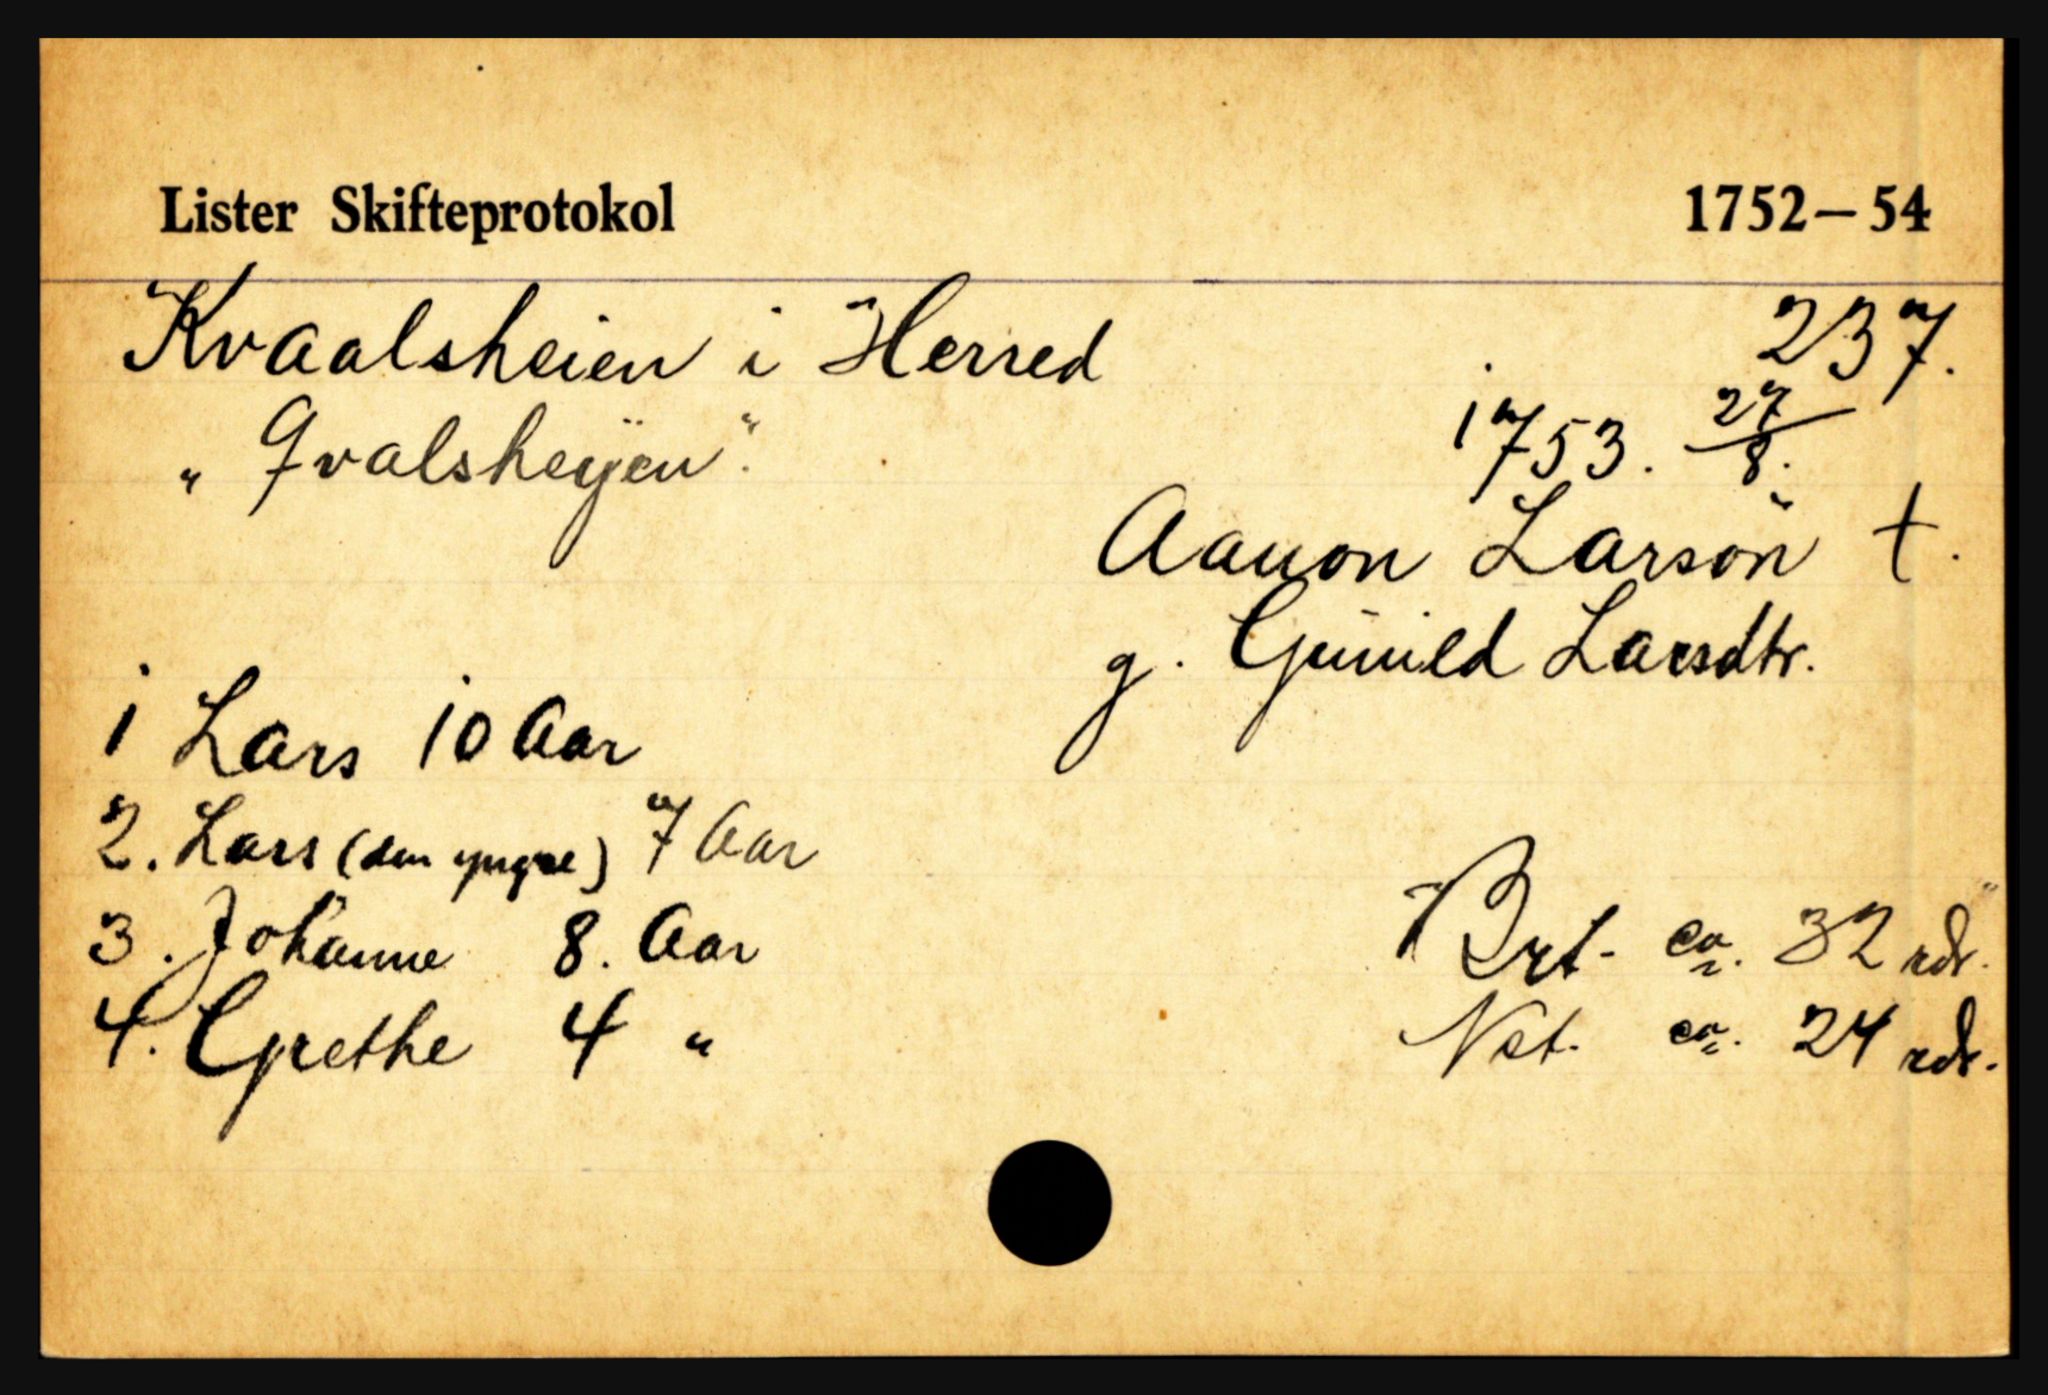 Lister Skifteprotokol 1752-54
Kvaalsheien i Herred 237.
„ Qvalsheÿen". 1753. 27/8.
Aanon Larsön †.
g. Gunild Larsdtr.
1 Lars 10 Aar
2. Lars (den yngre) 7 Aar
3. Johanne 8. Aar
4. Grethe 4 "
Brt. ca. 32 rdr.
Net. ca. 24 rdr.